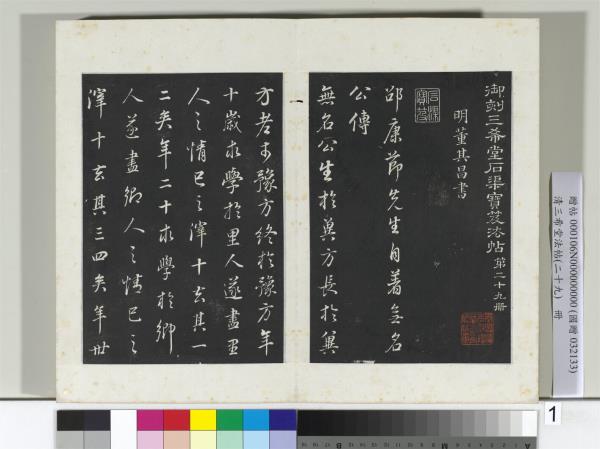 御刻三希堂石渠寶笈法帖第二十九冊
石渠寶笈
明董其昌書
邵康節先生自著無名
公傳
無名公生於冀方長於冀
方老于豫方終於豫方年
十歲求學於里人遂盡里
人之情已之滓十去其一
二矣年二十求學於鄉
人遂盡鄉人之情已之
滓十去其三四矣年卅
贈帖 000106N000000000 (國贈 032133)
清三希堂法帖(二十九) 冊
1